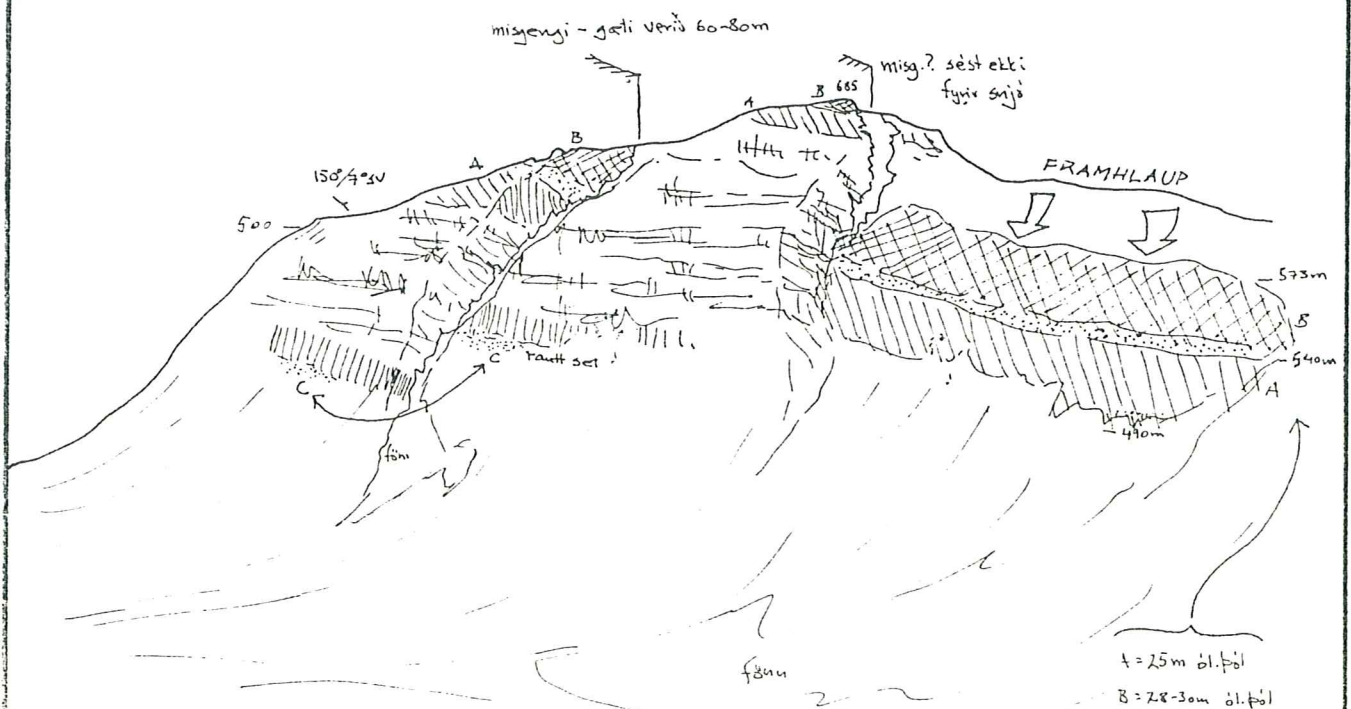 misgengi - gæti verið 60-80m
misg.? sést ekki
fyrir snjó
A
B
685
B
A
150°/7°SV
500
FRAMHLAUP
573m
B
540m
A
490m
C
rautt set
C
fönn
fönn
A = 25m ól.þól
B = 28-30m ól.þól